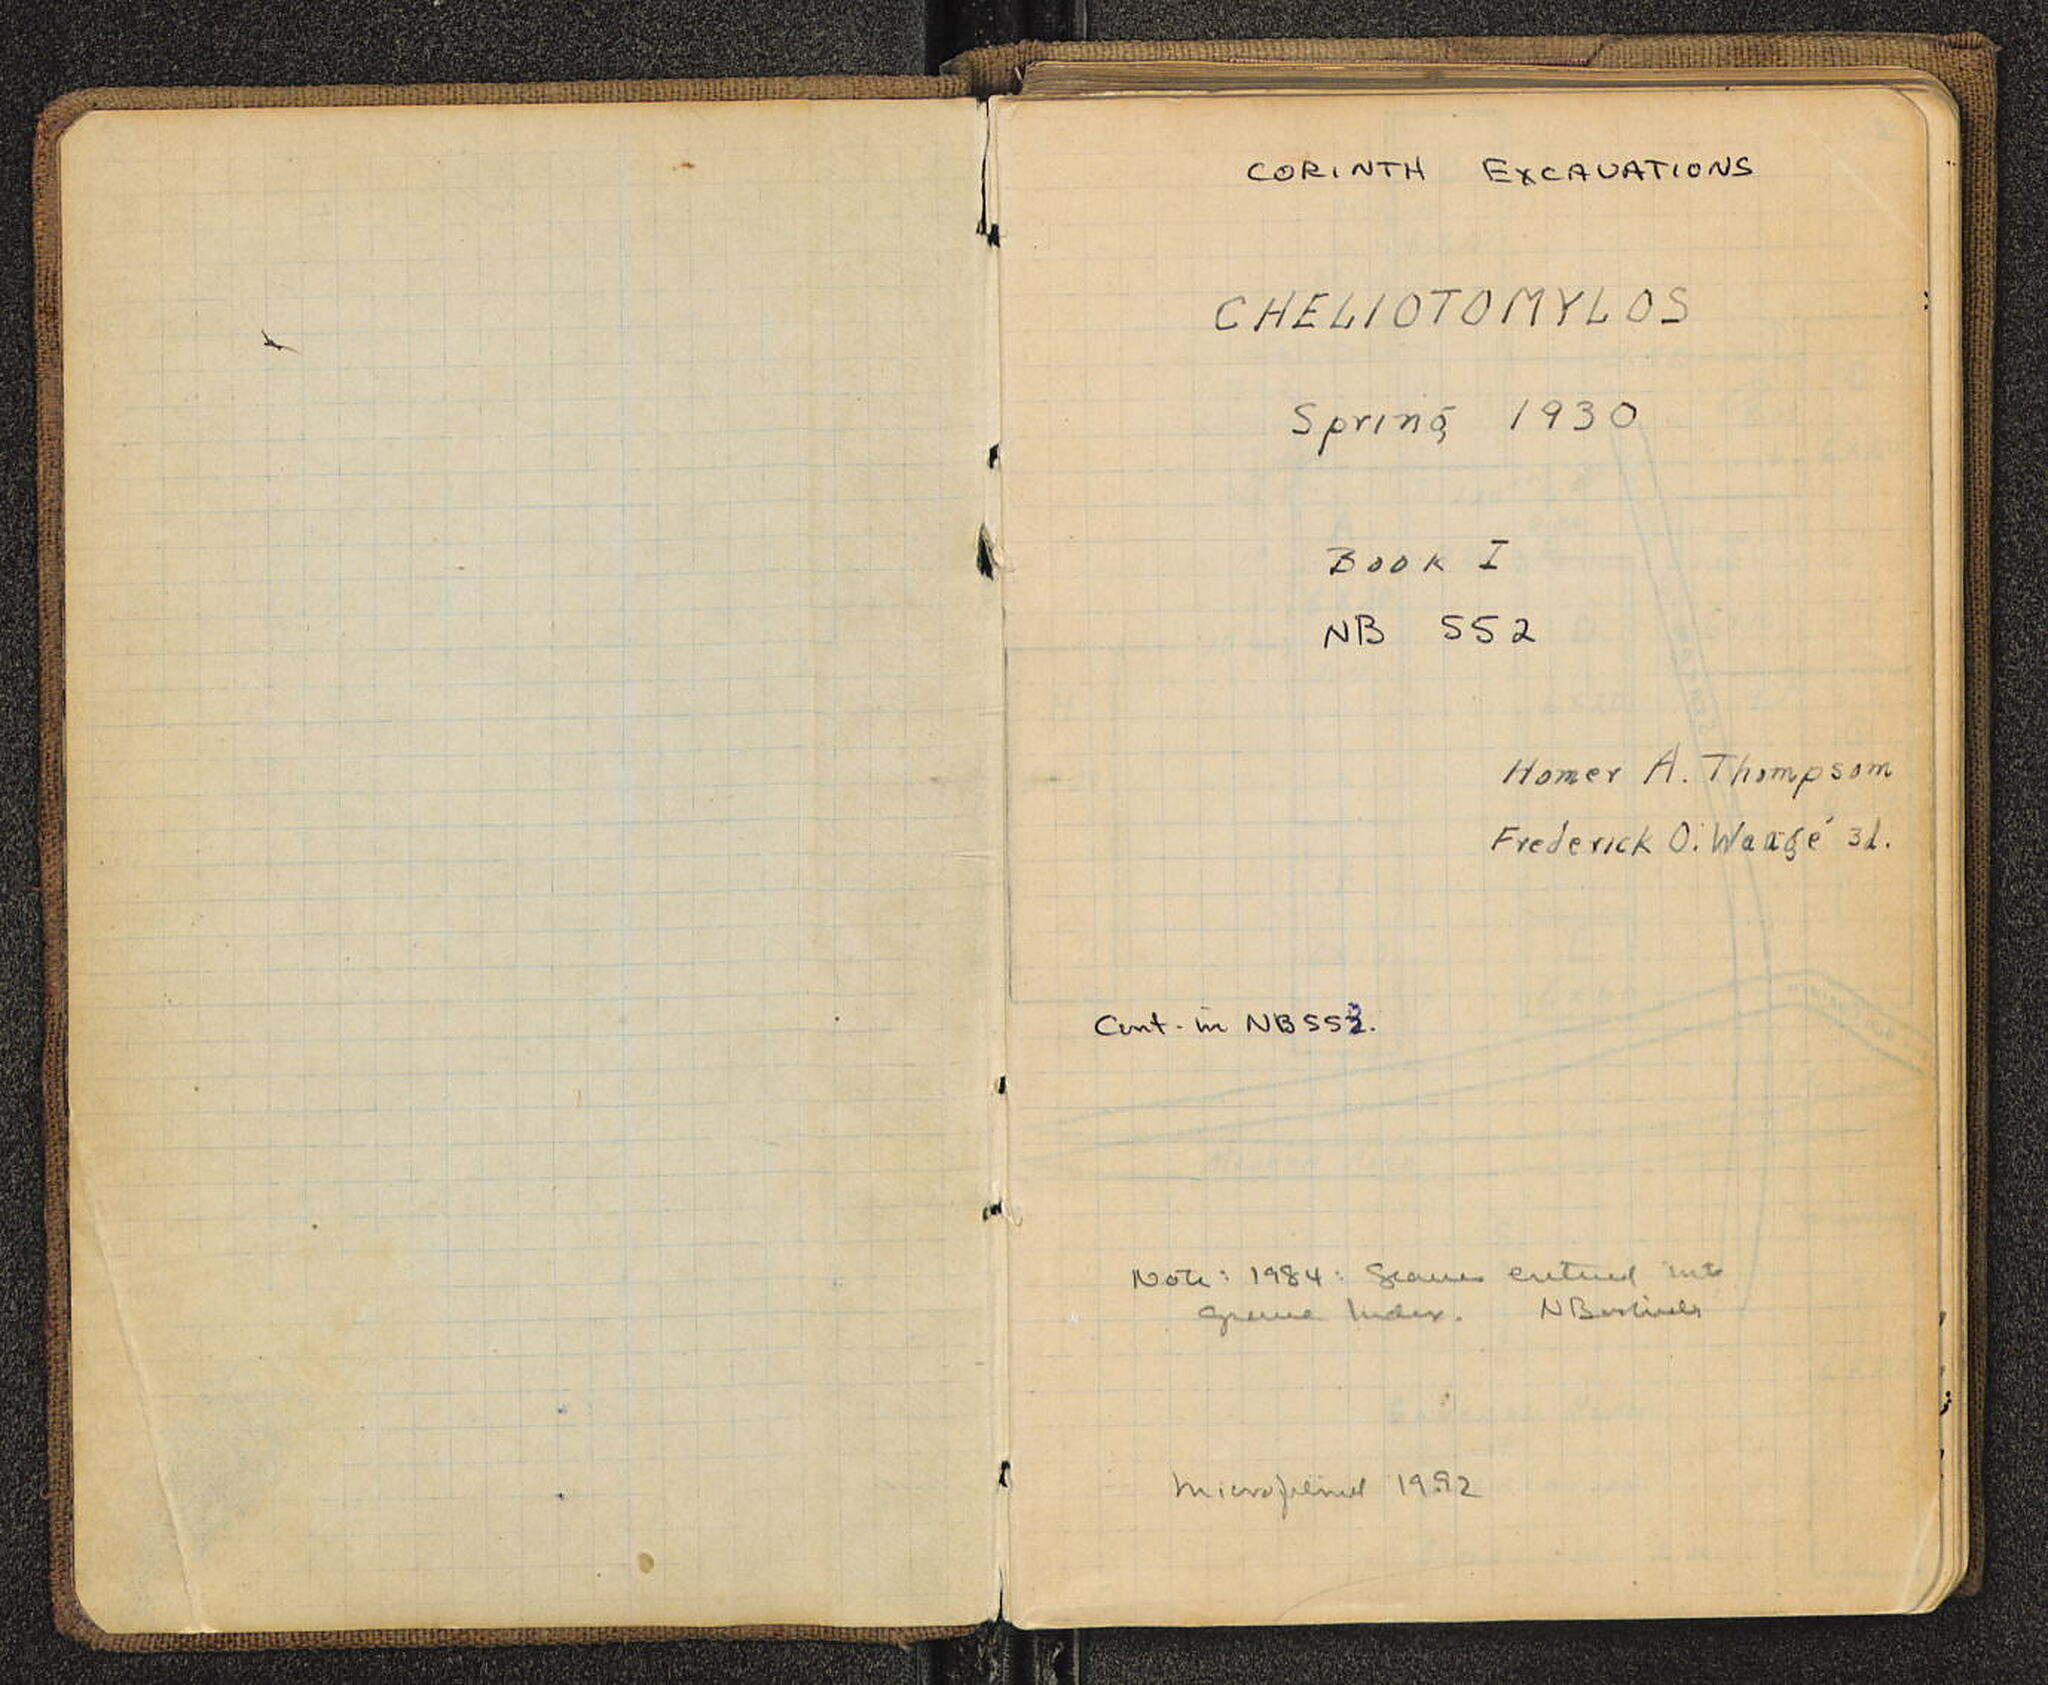 CORINTH EXCAVATIONS
CHELIOTOMYLOS
Spring 1930
Book I
NB 552
Homer A. Thompson
Frederick O. Waagé 3d.
Cont. in NB 553.
Note: 1984: Graves entered into
Grave Index. NBookidis
Microfilmed 1992